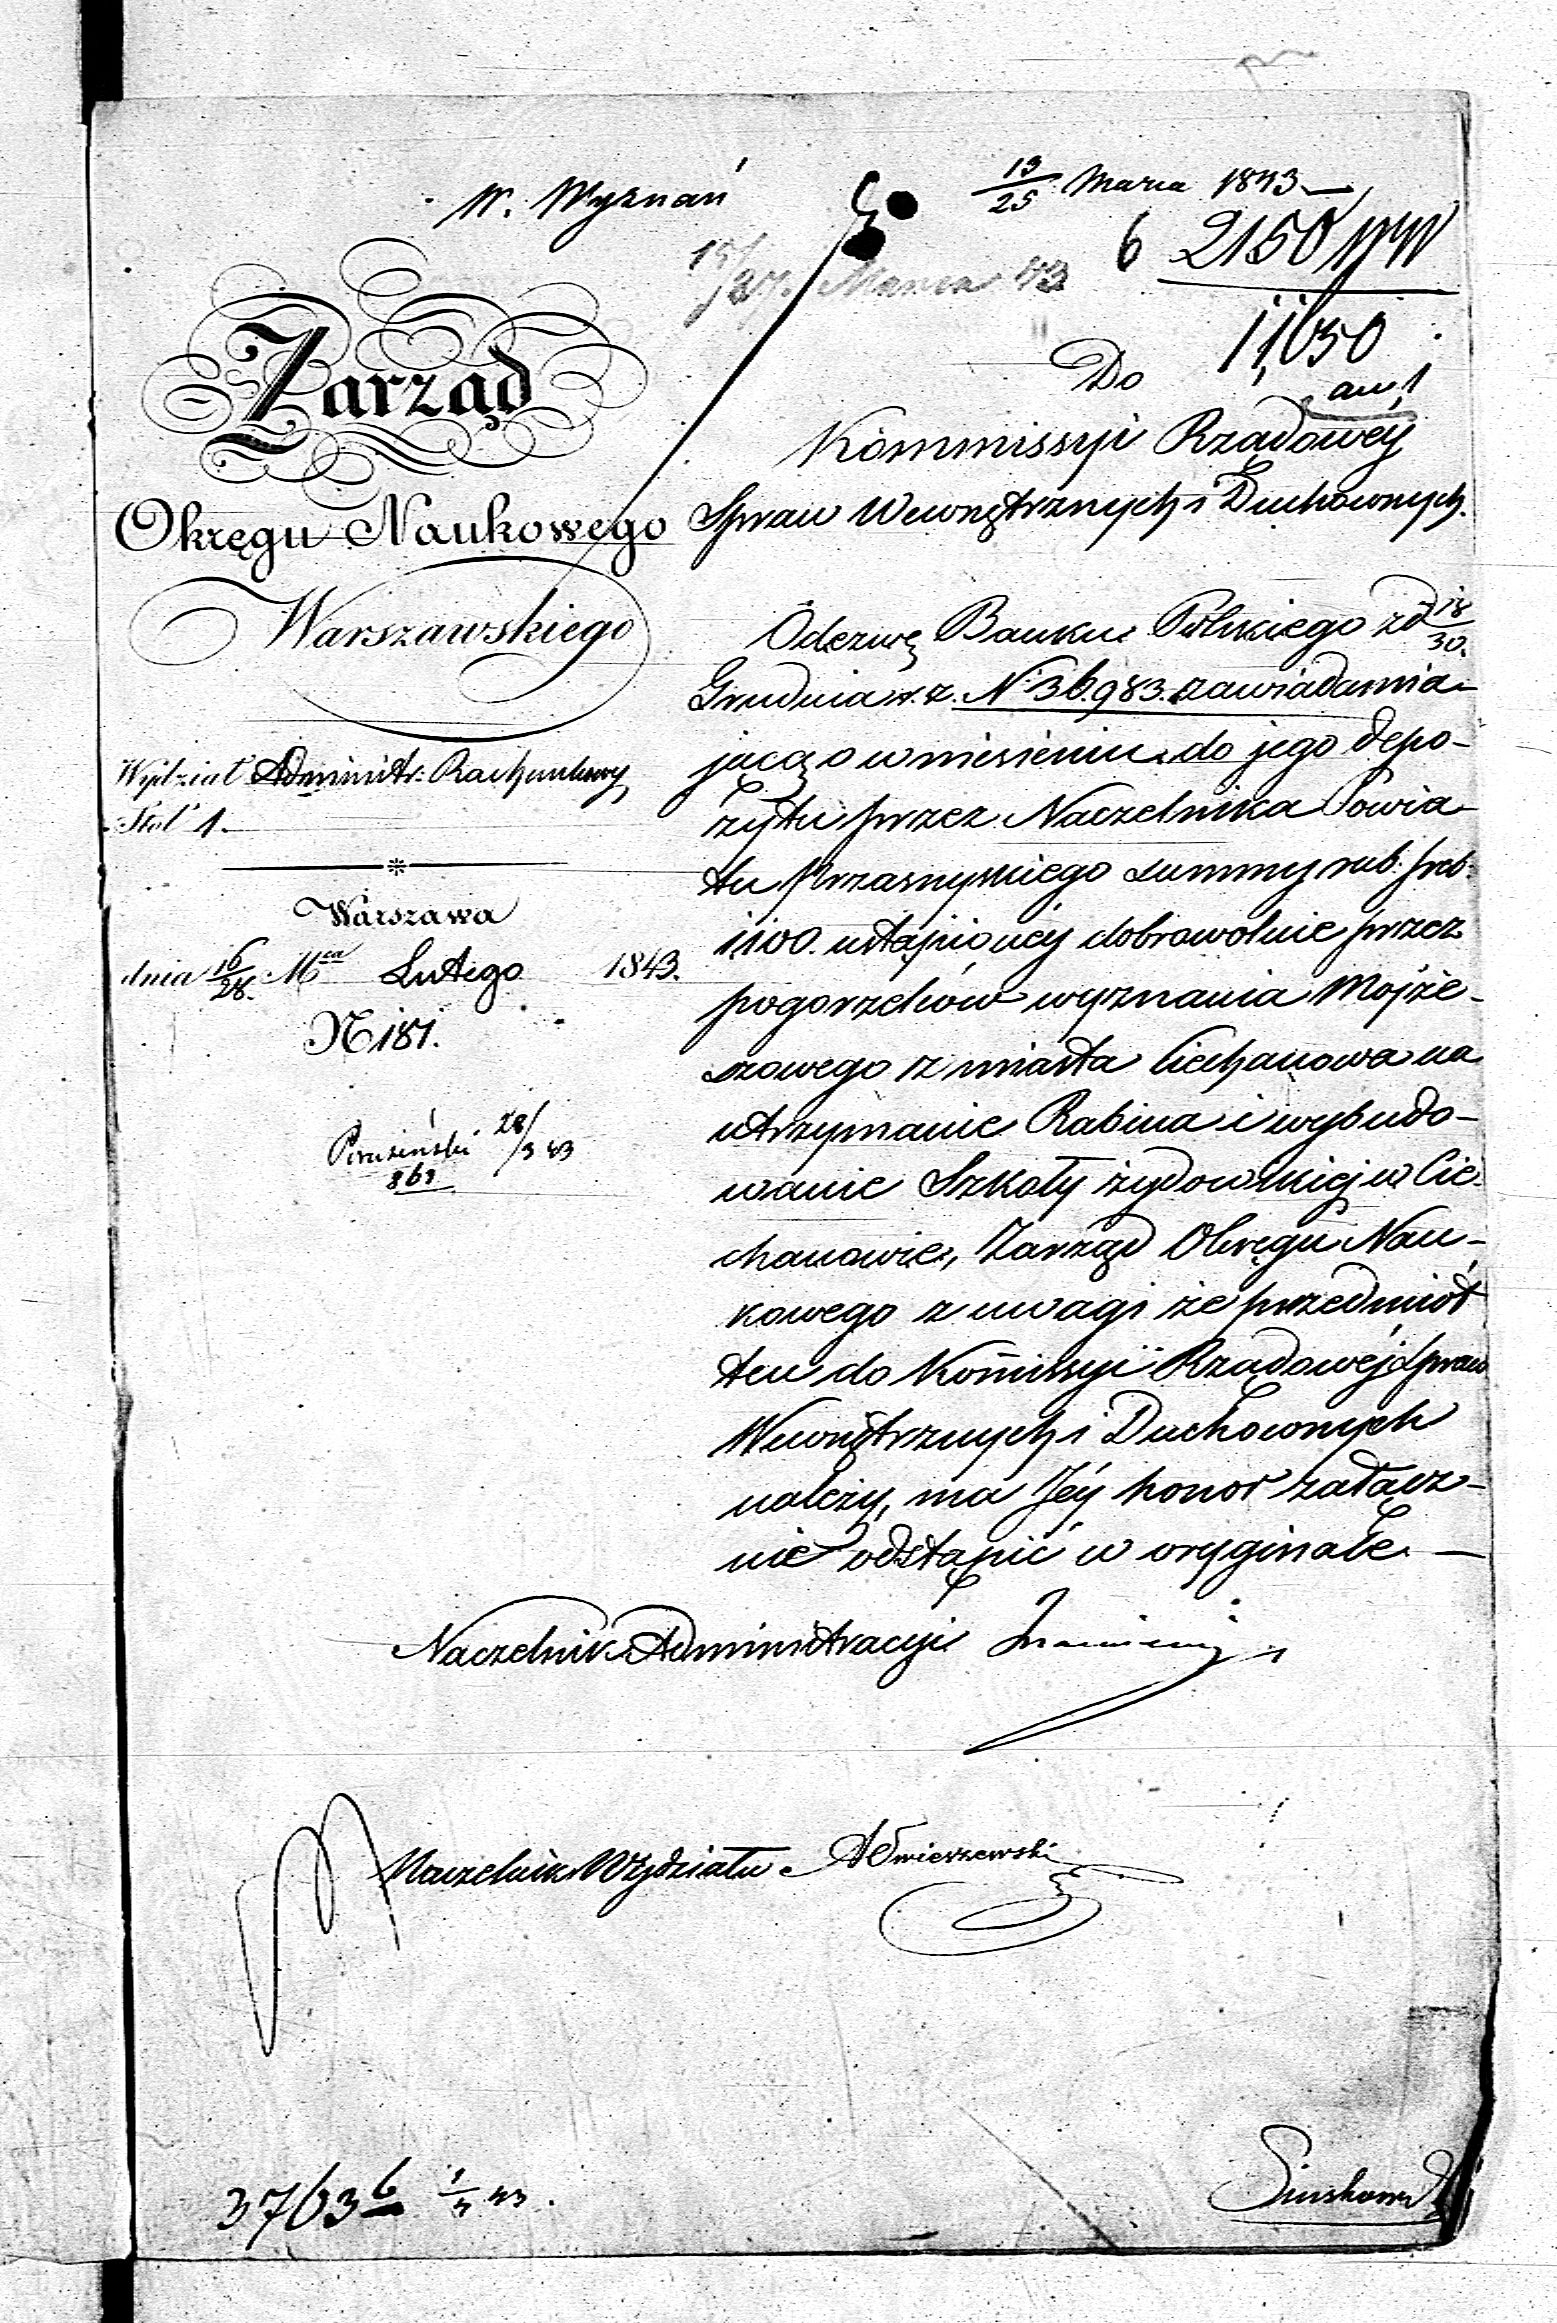 W. Wyznań
13/25 Marca 1843
15/27. Marca 43
6 2150
11,050
Zarząd
Okręgu Naukowego
Warszawskiego
Wydział Administr: Rachunkowy
Stół 1.
Warszawa
dnia 16/28. Mca Lutego 1843.
N 181.
28/3 43
869
Do
Kommissyi Rządowey
Spraw Wewnętrznych i Duchownych.
Odezwę Banku Polskiego z d 18/30.
Grudnia r. z. N. 36,983. zawiadamia-
jącą o wniesieniu do jego depo-
zytu przez Naczelnika Powia-
tu Przasnyskiego summy rub. sreb.
1100. ustąpioney dobrowolnie przez
pogorzelców wyznania Mojże-
szowego z miasta Ciechanowa na
utrzymanie Rabina i wybudo-
wanie Szkoły żydowskiej w Cie-
chanowie, Zarząd Okręgu Nau-
kowego z uwagi że przedmiot
ten do Komissyi Rządowéj Spraw
Wewnętrznych i Duchownych
należy, ma Jéy honor załącz-
nie odstąpić w oryginale. —
Naczelnik Administracyi
Naczelnik Wydziału
3763 6 1/3 43.